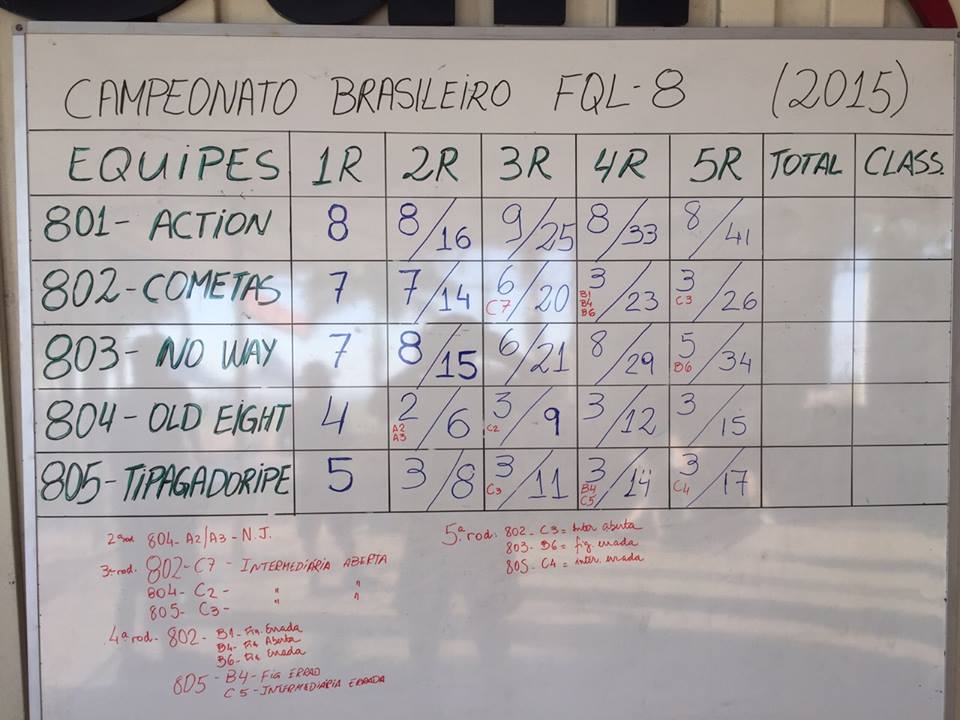 CAMPEONATO BRASILEIRO FQL-8 (2015)
EQUIPES 1R 2R 3R 4R 5R TOTAL CLASS.
801- ACTION 8 8/16 9/25 8/33 8/41
802-COMETAS 7 7/14 6/20 C7 3/23 B1 B4 B6 3/26 C3
803- NO WAY 7 8/15 6/21 8/29 5/34 B6
804- OLD EIGHT 4 2/6 A2 A3 3/9 C2 3/12 3/15
805- TIPAGADORIPE 5 3/8 3/11 C3 3/14 B4 C5 3/17 C4
2ª rod 804- A2/A3 - N.J.
3ª rod. 802-C7 - INTERMEDIÁRIA ABERTA
804- C2 - " "
805- C3 - " "
4ª rod. 802- B1- Fig. Errada
B4- Fig Aberta
B6- Fig Errada
805 - B4- FIG ERRAD
C5 -INTERMEDIÁRIA ERRADA
5ª rod. 802- C3= Inter aberta
803- B6= fig errada
805- C4 = inter. errada